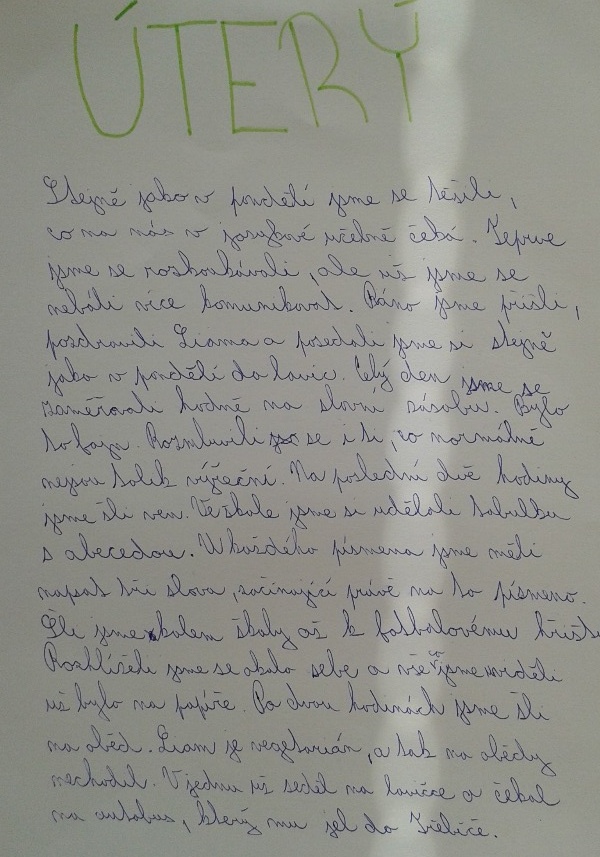 ÚTERÝ
Stejně jako v pondělí jsme se těšili,
co na nás v jazykové učebně čeká. Teprve
jsme se rozkoukávali, ale už jsme se
nebáli více komunikovat. Ráno jsme přišli,
pozdravili Liama a posedali jsme si stejně
jako v pondělí do lavic. Celý den jsme se
zaměřovali hodně na slovní zásobu. Bylo
to fajn. Rozmluvili se i ti, co normálně
nejsou tolik výřeční. Na poslední dvě hodiny
jsme šli ven. Ve škole jsme si udělali tabulku
s abecedou. U každého písmena jsme měli
napsat tři slova, začínající právě na to písmeno.
Šli jsme kolem školy až k fotbalovému hřišti.
Rozhlíželi jsme se okolo sebe a vše co jsme viděli
už bylo na papíře. Po dvou hodinách jsme šli
na oběd. Liam je vegetarián, a tak na obědy
nechodil. V jednu už seděl na lavičce a čekal
na autobus, který mu jel do Třebíče.